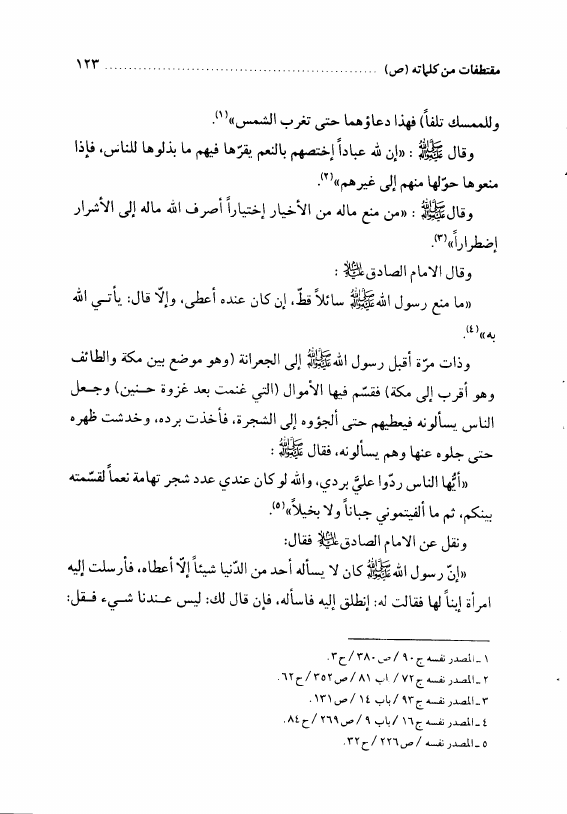 مقتطفات من كلماته (ص) ............................................................ ١٢٣
وللممسك تلفاً) فهذا دعاؤهما حتى تغرب الشمس»(١).
وقال ﷺ : «إن لله عباداً إختصهم بالنعم يقرّها فيهم ما بذلوها للناس، فإذا
منعوها حوّلها منهم إلى غيرهم»(٢).
وقال ﷺ : «من منع ماله من الأخيار إختياراً أصرف الله ماله إلى الأشرار
إضطراراً»(٣).
وقال الامام الصادق عليه السلام :
«ما منع رسول الله ﷺ سائلاً قطّ، إن كان عنده أعطى، وإلّا قال: يأتي الله
به»(٤).
وذات مرّة أقبل رسول الله ﷺ إلى الجعرانة (وهو موضع بين مكة والطائف
وهو أقرب إلى مكة) فقسّم فيها الأموال (التي غنمت بعد غزوة حنين) وجعل
الناس يسألونه فيعطيهم حتى ألجؤوه إلى الشجرة، فأخذت برده، وخدشت ظهره
حتى جلوه عنها وهم يسألونه، فقال ﷺ :
«أيُّها الناس ردّوا عليَّ بردي، والله لو كان عندي عدد شجر تهامة نعماً لقسّمته
بينكم، ثم ما ألفيتموني جباناً ولا بخيلاً»(٥).
ونقل عن الامام الصادق عليه السلام فقال:
«إنّ رسول الله ﷺ كان لا يسأله أحد من الدّنيا شيئاً إلّا أعطاه، فأرسلت إليه
امرأة إبناً لها فقالت له: إنطلق إليه فاسأله، فإن قال لك: ليس عندنا شيء فقل:
١ ـ المصدر نفسه ج٩٠ / ص٣٨٠ / ح٣.
٢ ـ المصدر نفسه ج٧٢ / باب ٨١ / ص٣٥٢ / ح٦٢.
٣ ـ المصدر نفسه ج٩٣ / باب ١٤ / ص١٣١.
٤ ـ المصدر نفسه ج١٦ / باب ٩ / ص٢٦٩ / ح٨٤.
٥ ـ المصدر نفسه / ص٢٢٦ / ح٣٢.